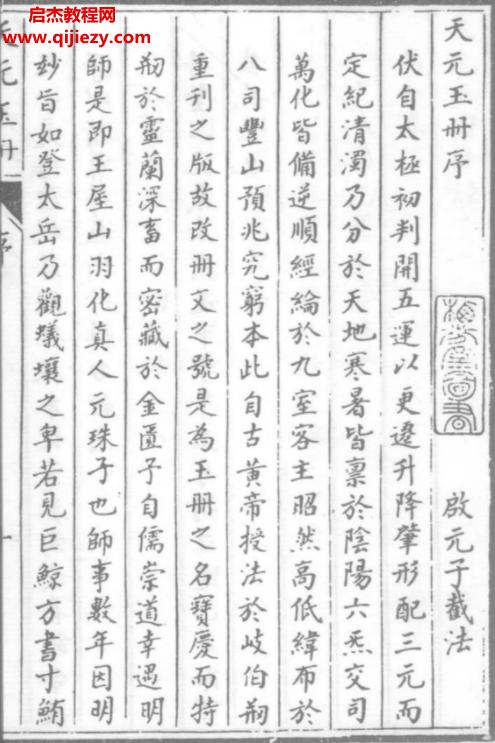 启杰教程网
www.qijiezy.com
天元玉冊序
啟元子截法
伏自太極初判開五運以更遷升降肇形配三元而
定紀清濁乃分於天地寒暑皆禀於陰陽六炁交司
萬化皆備逆順經綸於九室客主昭然高低緯布於
八司豐山預兆究窮本此自古黃帝授法於岐伯刱
重刊之版故改冊文之號是為玉冊之名寶慶而特
刱於靈蘭深畜而密藏於金匱予自儒崇道幸遇明
師是即王屋山羽化真人元珠子也師事數年因明
玅旨如登太岳乃觀蟻壤之卑若見巨鯨方書寸鮪
天元玉冊
序
一